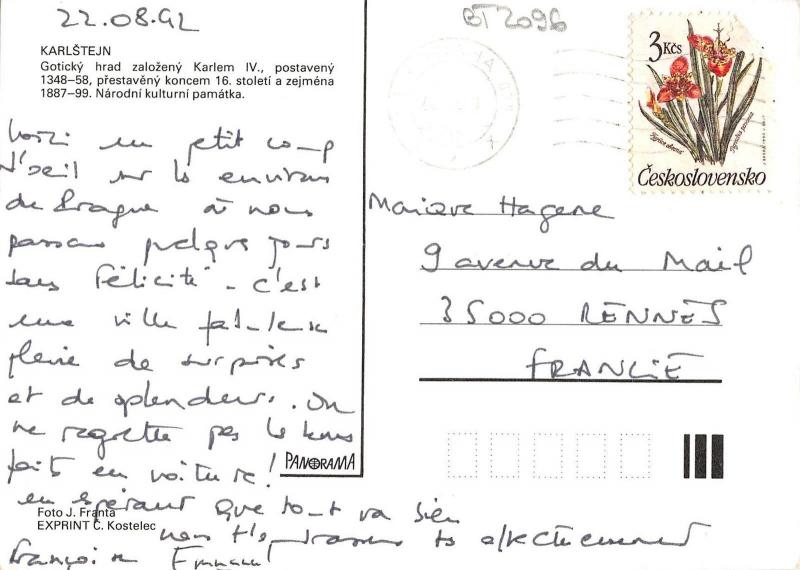 22.08.92
BT2096
KARLŠTEJN
Gotický hrad založený Karlem IV., postavený
1348–58, přestavěný koncem 16. století a zejména
1887–99. Národní kulturní památka.
3 Kčs
Československo
Voici un petit coup
d'oeil sur les environs
de Prague où nous
passons quelques jours
sans Félicité - c'est
une ville fabuleuse
pleine de surprises
et de splendeurs. On
ne regrette pas les
faits en voiture!
en espérant que tout va bien
nous t'embrassons affectueusement
Françoise Emmanuel
Hagene
9 avenue du Mail
35000 RENNES
FRANCE
PANORAMA
Foto J. Franta
EXPRINT Č. Kostelec